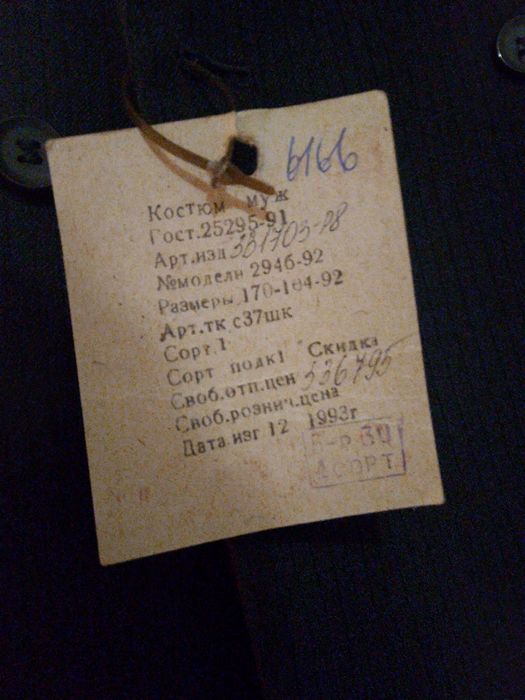 6166
Костюм муж
Гост.25295-91
Арт.изд 381703-Р8
№модели 2946-92
Размеры 170-104-92
Арт.тк с37шк
Сорт.1
Сорт подк1 Скидка
Своб.отп.цен 336795
Своб.рознич.цена
Дата изг 12 1993г
30
1 СОРТ